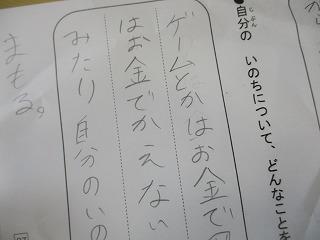 ●自分の いのちについて、どんなことを
じぶん
ゲームとかはお金で
はお金でかえない
みたり 自分のいの
まもる。